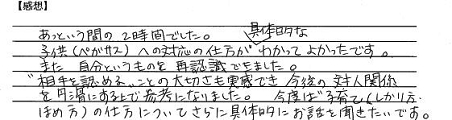 【感想】
あっという間の2時間でした。 具体的な
子供(ペガサス)への対応の仕方がわかってよかったです。
また 自分というものを再認識できました。
"相手を認める"ことの大切さも実感でき 今後の対人関係
を円滑にする上で参考になりました。 今度は"子育て(しかり方・
ほめ方)の仕方についてさらに具体的にお話を聞きたいです。